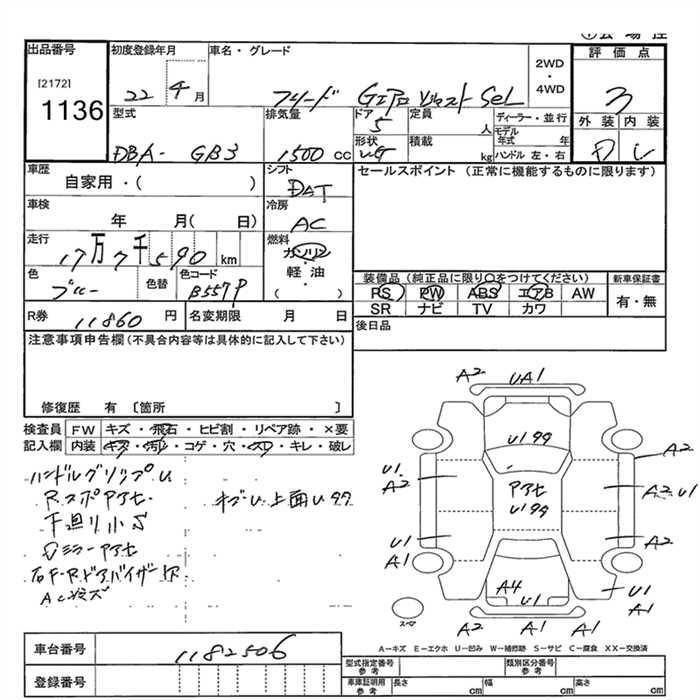 出品番号
[2172]
1136
初度登録年月
22 4月
車名・グレード
フリード Gエアロ ジャスト SeL
2WD
・
4WD
評価点
3
外装 内装
D C
型式
DBA- GB3
排気量
1500 cc
ドア
5
形状
定員
人
積載
kg
ディーラー・並行
モデル
年式 年
ハンドル 左・右
車歴
自家用・( )
シフト
DAT
車検
年 月( 日)
冷房
AC
走行
17万7千590 km
燃料
ガソリン
・
軽油
( )
色
ブルー
色替
色コード
B557P
R券
11860 円
名変期限 月 日
セールスポイント(正常に機能するものに限ります)
装備品(純品に限り〇をつけてください)
PS PW ABS エアB AW
SR ナビ TV カワ
新車保証書
有・無
後日品
注意事項申告欄(不具合内容等は具体的に記入して下さい)
修復歴 有 〔箇所 〕
検査員
記入欄
FW キズ・飛石・ヒビ割・リペア跡・×要
内装 キズ・汚れ・コゲ・穴・スレ・キレ・破レ
ハンドルグリップU
Rスポアセ
下廻り小S
Dミラーアセ
右F・Rドアバイザー欠
キズU 上面U99
A2 UA1
U199
アアセ
U199
U1
A2
U1
A1
A2
A2 U1
A2
U1
A1
A4
U1
A2 A1 A1
スペア
A－キズ E－エクボ U－凹み W－補修跡 S－サビ C－腐食 XX－交換済
車台番号
1182506
登録番号
型式指定番号
参考
類別区分番号
参考
車庫証明用
参考
長さ cm 幅 cm 高さ cm